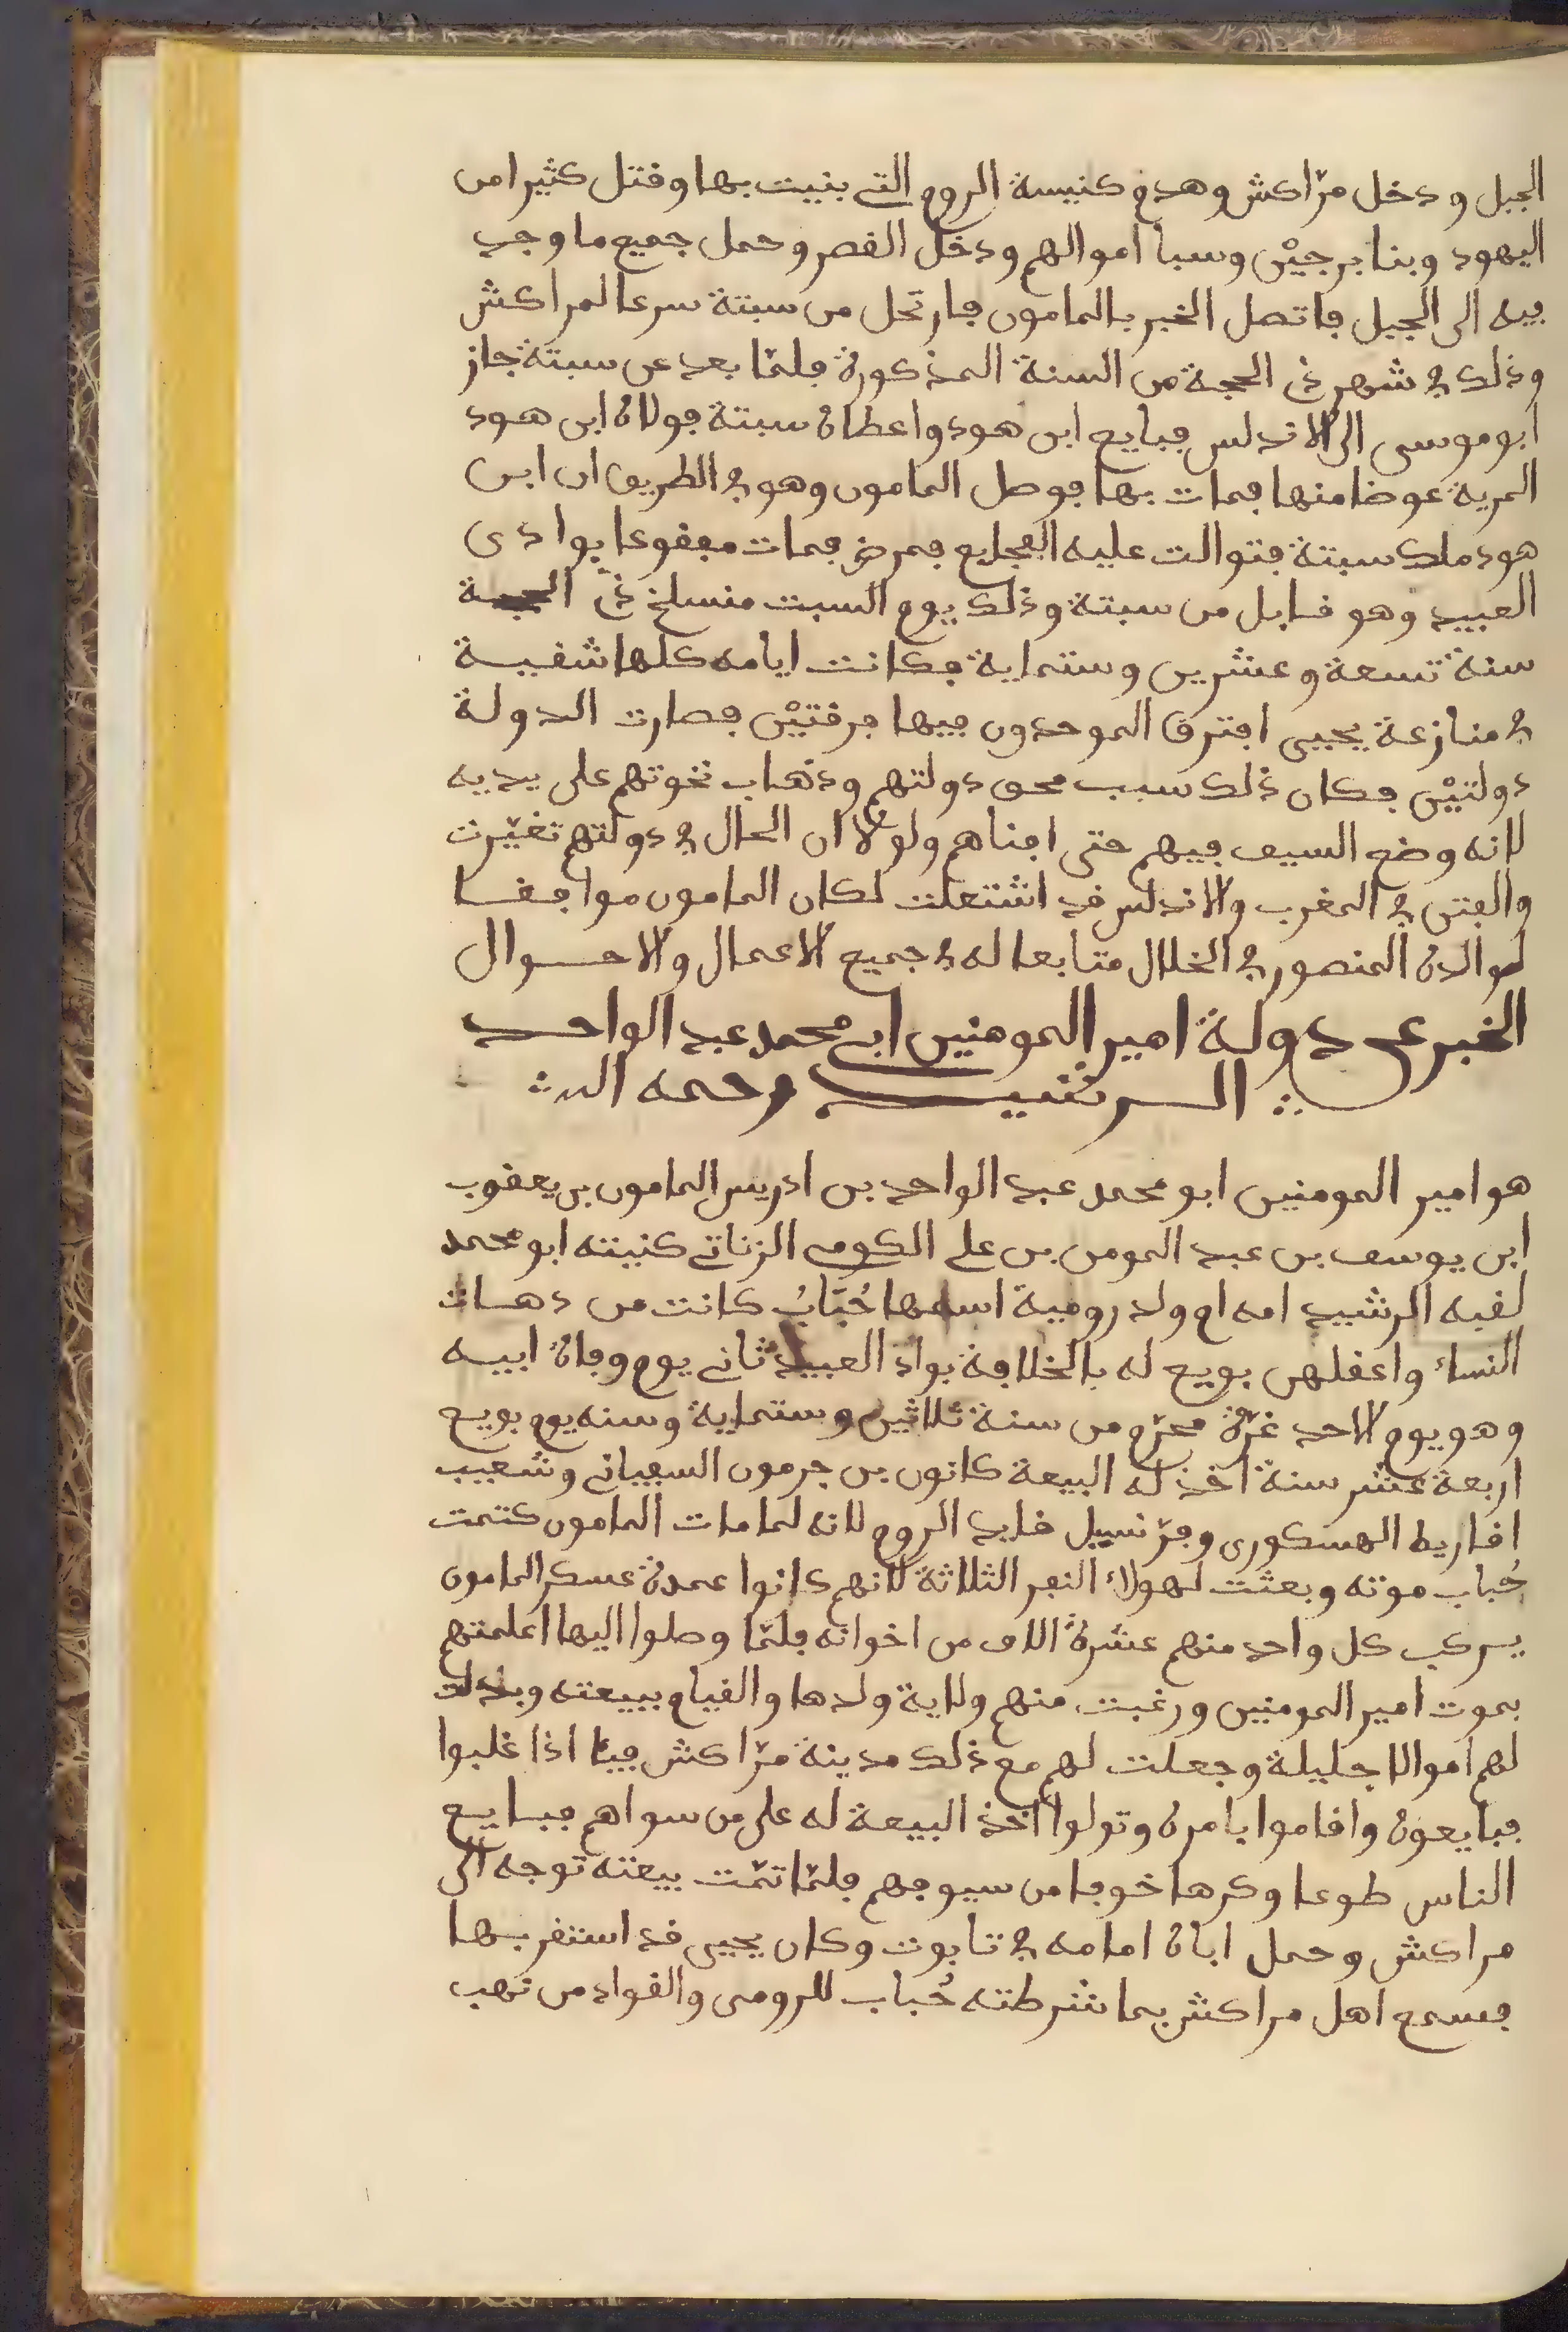 الجبل ودخل مرّاكش وهدم كنيسة الروم التى بنيت بها وقتل كثيرا من
اليهود وبنا برجيْن وسبا اموالهم ودخل القصر وحمل جميع ما وجد
فيه الى الجبل فاتصل الخبر بالمامون فارتحل من سبتة سرعا لمراكش
وذلك في شهر ذى الحجة من السنة المذكورة فلمّا بعد عن سبتة جاز
ابو موسى الى الاندلس فبايع ابن هود واعطاه سبتة فولاه ابن هود
المرية عوضا منها فمات بها فوصل المامون وهو في الطريق ان ابن
هود ملك سبتة فتوالت عليه الفجايع فمرض فمات مفقوعا بوادى
العبيد وهو قابل من سبتة وذلك يوم السبت منسلخ ذى الحجة
سنة تسعة وعشرين وستماية فكانت ايامه كلها شقيــة
في منازعة يحيى افترق الموحدون فيها فرقتيْن فصارت الدولة
دولتيْن فكان ذلك سبب محق دولتهم وذهاب نخوتهم على يديه
لانه وضع السيف فيهم حتى افناهم ولولا ان الحال في دولتهم تغيّرت
والفتن في المغرب والاندلس قد اشتعلت لكان المامون موافقــا
لوالده المنصور في الخلال متابعا له في جميع الاعمال والاحــوال
الخبر عن دولة امير المومنين ابى محمد عبد الواحــد
الــرشيــد رحمه الله
هو امير المومنين ابو محمد عبد الواحد بن ادريس المامون بن يعقوب
ابن يوسف بن عبد المومن بن على الكومى الزناتى كنيته ابو محمد
لقبه الرشيد امه ام ولد رومية اسمها حُبَابُ كانت من دهــات
النساء واعقلهن بويع له بالخلافة بواد العبيد ثانى يوم وفاة ابيــه
وهو يوم الاحد غرّة محرّم من سنة ثلاثين وستماية وسنه يوم بويع
اربعة عشر سنة اخذ له البيعة كانون بن جرمون السفيانى وشعيب
اقاريط الهسكورى وفرّنسيل قايد الروم لانه لما مات المامون كتمت
حُباب موته وبعثت لهولاء النفر الثلاثة لانهم كانوا عمدة عسكر المامون
يركب كل واحد منهم عشرة الاف من اخوانه فلمّا وصلوا اليها اعلمتهم
بموت امير المومنين ورغبت منهم ولاية ولدها والقيام ببيعته وبذلت
لهم اموالا جليلة وجعلت لهم مع ذلك مدينة مرّاكش فيئا اذا غلبوا
فبايعوه واقاموا بامره وتولوا اخذ البيعة له على من سواهم فبايــع
الناس طوعا وكرها خوفا من سيوفهم فلمّا تمّت بيعته توجه الى
مراكش وحمل اباه امامه في تابوت وكان يحيى قد استقر بهــا
فسمع اهل مراكش بما شرطته حُباب للرومى والقواد من نهب